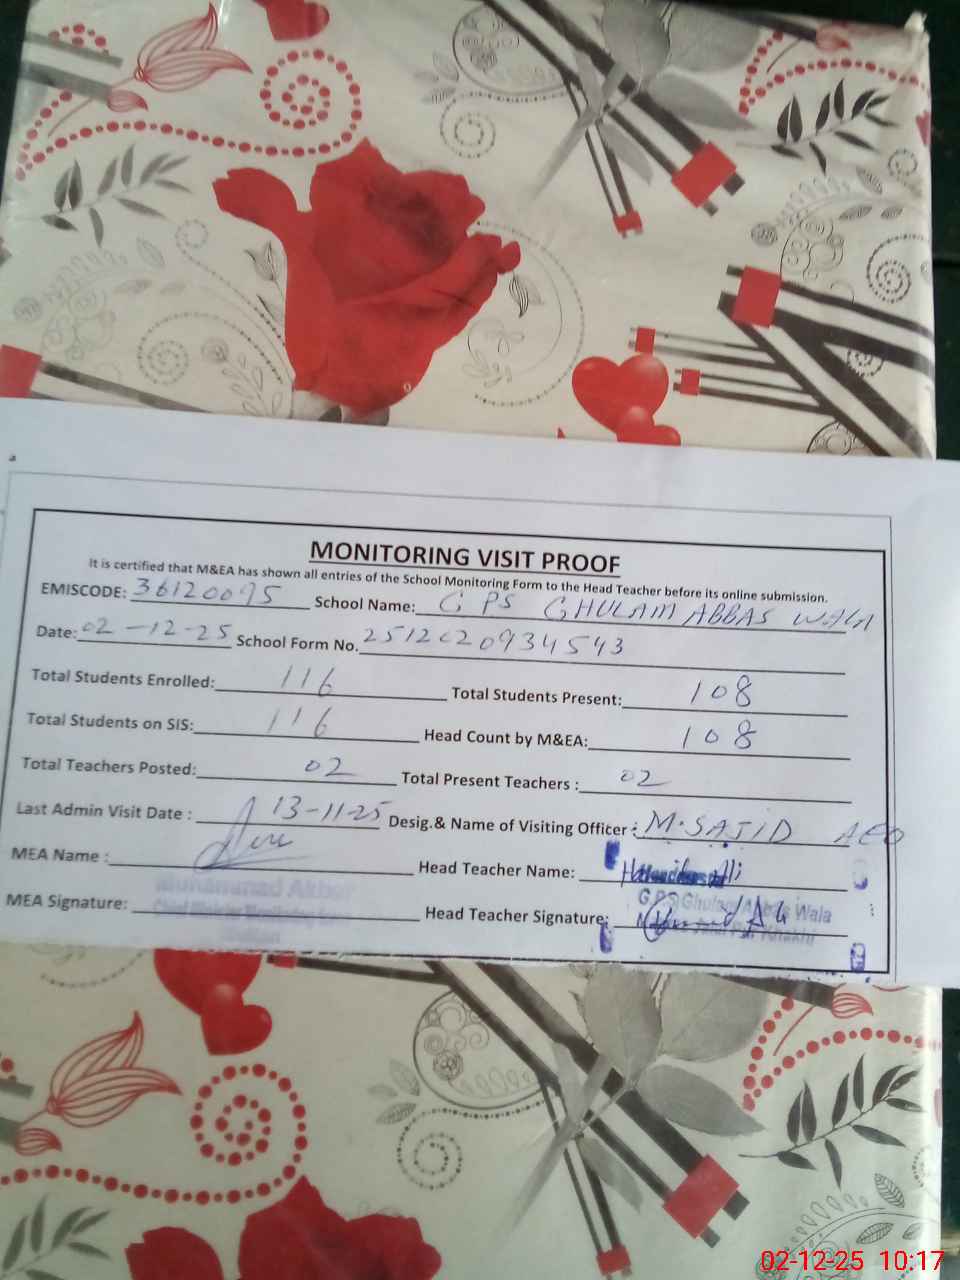 MONITORING VISIT PROOF
It is certified that M&EA has shown all entries of the School Monitoring Form to the Head Teacher before its online submission.
EMISCODE: 36120095 School Name: G PS GHULAM ABBAS WALA
Date: 02-12-25 School Form No. 2512020934543
Total Students Enrolled: 116 Total Students Present: 108
Total Students on SIS: 116 Head Count by M&EA: 108
Total Teachers Posted: 02 Total Present Teachers : 02
Last Admin Visit Date : 13-11-25 Desig.& Name of Visiting Officer : M.SAJID AEO
MEA Name : Head Teacher Name: Ali
Muhammad Akbar G.P.S Ghulam Abbas Wala
MEA Signature: Head Teacher Signature:
02-12-25 10:17